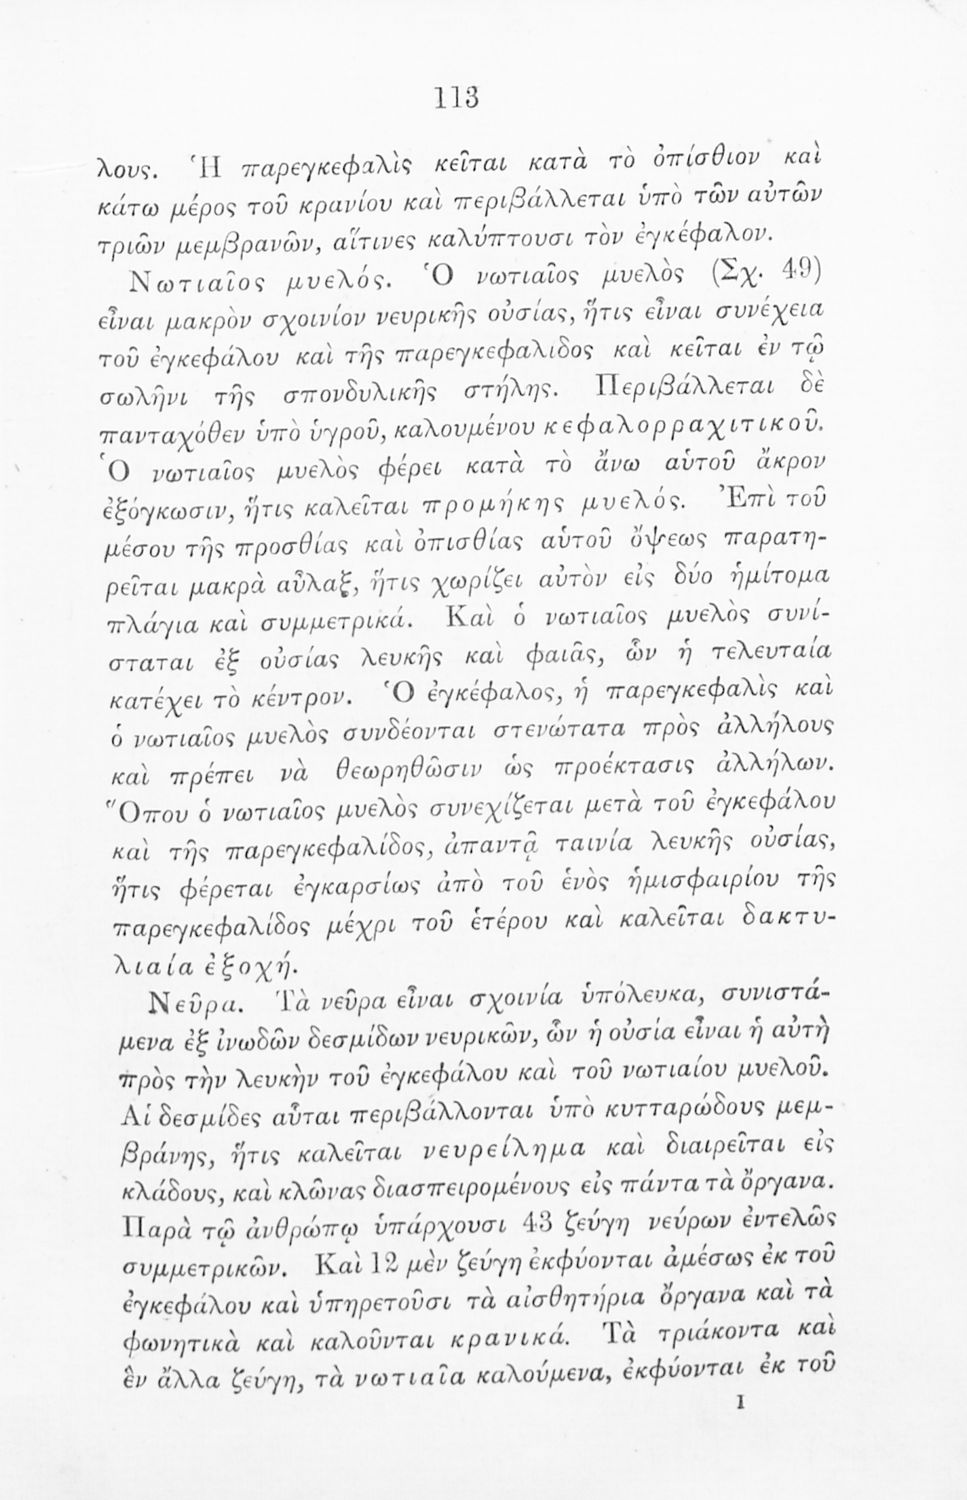 113
λους. Ἡ παρεγκεφαλὶς κεῖται κατὰ τὸ ὀπίσθιον καὶ
κάτω μέρος τοῦ κρανίου καὶ περιβάλλεται ὑπὸ τῶν αὐτῶν
τριῶν μεμβρανῶν, αἵτινες καλύπτουσι τὸν ἐγκέφαλον.
Νωτιαῖος μυελός. Ὁ νωτιαῖος μυελὸς (Σχ. 49)
εἶναι μακρὸν σχοινίον νευρικῆς οὐσίας, ἥτις εἶναι συνέχεια
τοῦ ἐγκεφάλου καὶ τῆς παρεγκεφαλιδος καὶ κεῖται ἐν τῷ
σωλῆνι τῆς σπονδυλικῆς στήλης. Περιβάλλεται δὲ
πανταχόθεν ὑπὸ ὑγροῦ, καλουμένου κεφαλορραχιτικοῦ.
Ὁ νωτιαῖος μυελὸς φέρει κατὰ τὸ ἄνω αὑτοῦ ἄκρον
ἐξόγκωσιν, ἥτις καλεῖται προμήκης μυελός. Ἐπὶ τοῦ
μέσου τῆς προσθίας καὶ ὀπισθίας αὑτοῦ ὄψεως παρατη-
ρεῖται μακρὰ αὖλαξ, ἥτις χωρίζει αὐτὸν εἰς δύο ἡμίτομα
πλάγια καὶ συμμετρικά. Καὶ ὁ νωτιαῖος μυελὸς συνί-
σταται ἐξ οὐσίας λευκῆς καὶ φαιᾶς, ὧν ἡ τελευταία
κατέχει τὸ κέντρον. Ὁ ἐγκέφαλος, ἡ παρεγκεφαλὶς καὶ
ὁ νωτιαῖος μυελὸς συνδέονται στενώτατα πρὸς ἀλλήλους
καὶ πρέπει νὰ θεωρηθῶσιν ὡς προέκτασις ἀλλήλων.
Ὅπου ὁ νωτιαῖος μυελὸς συνεχίζεται μετὰ τοῦ ἐγκεφάλου
καὶ τῆς παρεγκεφαλίδος, ἀπαντᾷ ταινία λευκῆς οὐσίας,
ἥτις φέρεται ἐγκαρσίως ἀπὸ τοῦ ἑνὸς ἡμισφαιρίου τῆς
παρεγκεφαλίδος μέχρι τοῦ ἑτέρου καὶ καλεῖται δακτυ-
λιαία ἐξοχή.
Νεῦρα. Τὰ νεῦρα εἶναι σχοινία ὑπόλευκα, συνιστά-
μενα ἐξ ἰνωδῶν δεσμίδων νευρικῶν, ὧν ἡ οὐσία εἶναι ἡ αὐτὴ
πρὸς τὴν λευκὴν τοῦ ἐγκεφάλου καὶ τοῦ νωτιαίου μυελοῦ.
Αἱ δεσμίδες αὗται περιβάλλονται ὑπὸ κυτταρώδους μεμ-
βράνης, ἥτις καλεῖται νευρείλημα καὶ διαιρεῖται εἰς
κλάδους, καὶ κλῶνας διασπειρομένους εἰς πάντα τὰ ὄργανα.
Παρὰ τῷ ἀνθρώπῳ ὑπάρχουσι 43 ζεύγη νεύρων ἐντελῶς
συμμετρικῶν. Καὶ 12 μὲν ζεύγη ἐκφύονται ἀμέσως ἐκ τοῦ
ἐγκεφάλου καὶ ὑπηρετοῦσι τὰ αἰσθητήρια ὄργανα καὶ τὰ
φωνητικὰ καὶ καλοῦνται κρανικά. Τὰ τριάκοντα καὶ
ἓν ἄλλα ζεύγη, τὰ νωτιαῖα καλούμενα, ἐκφύονται ἐκ τοῦ
I